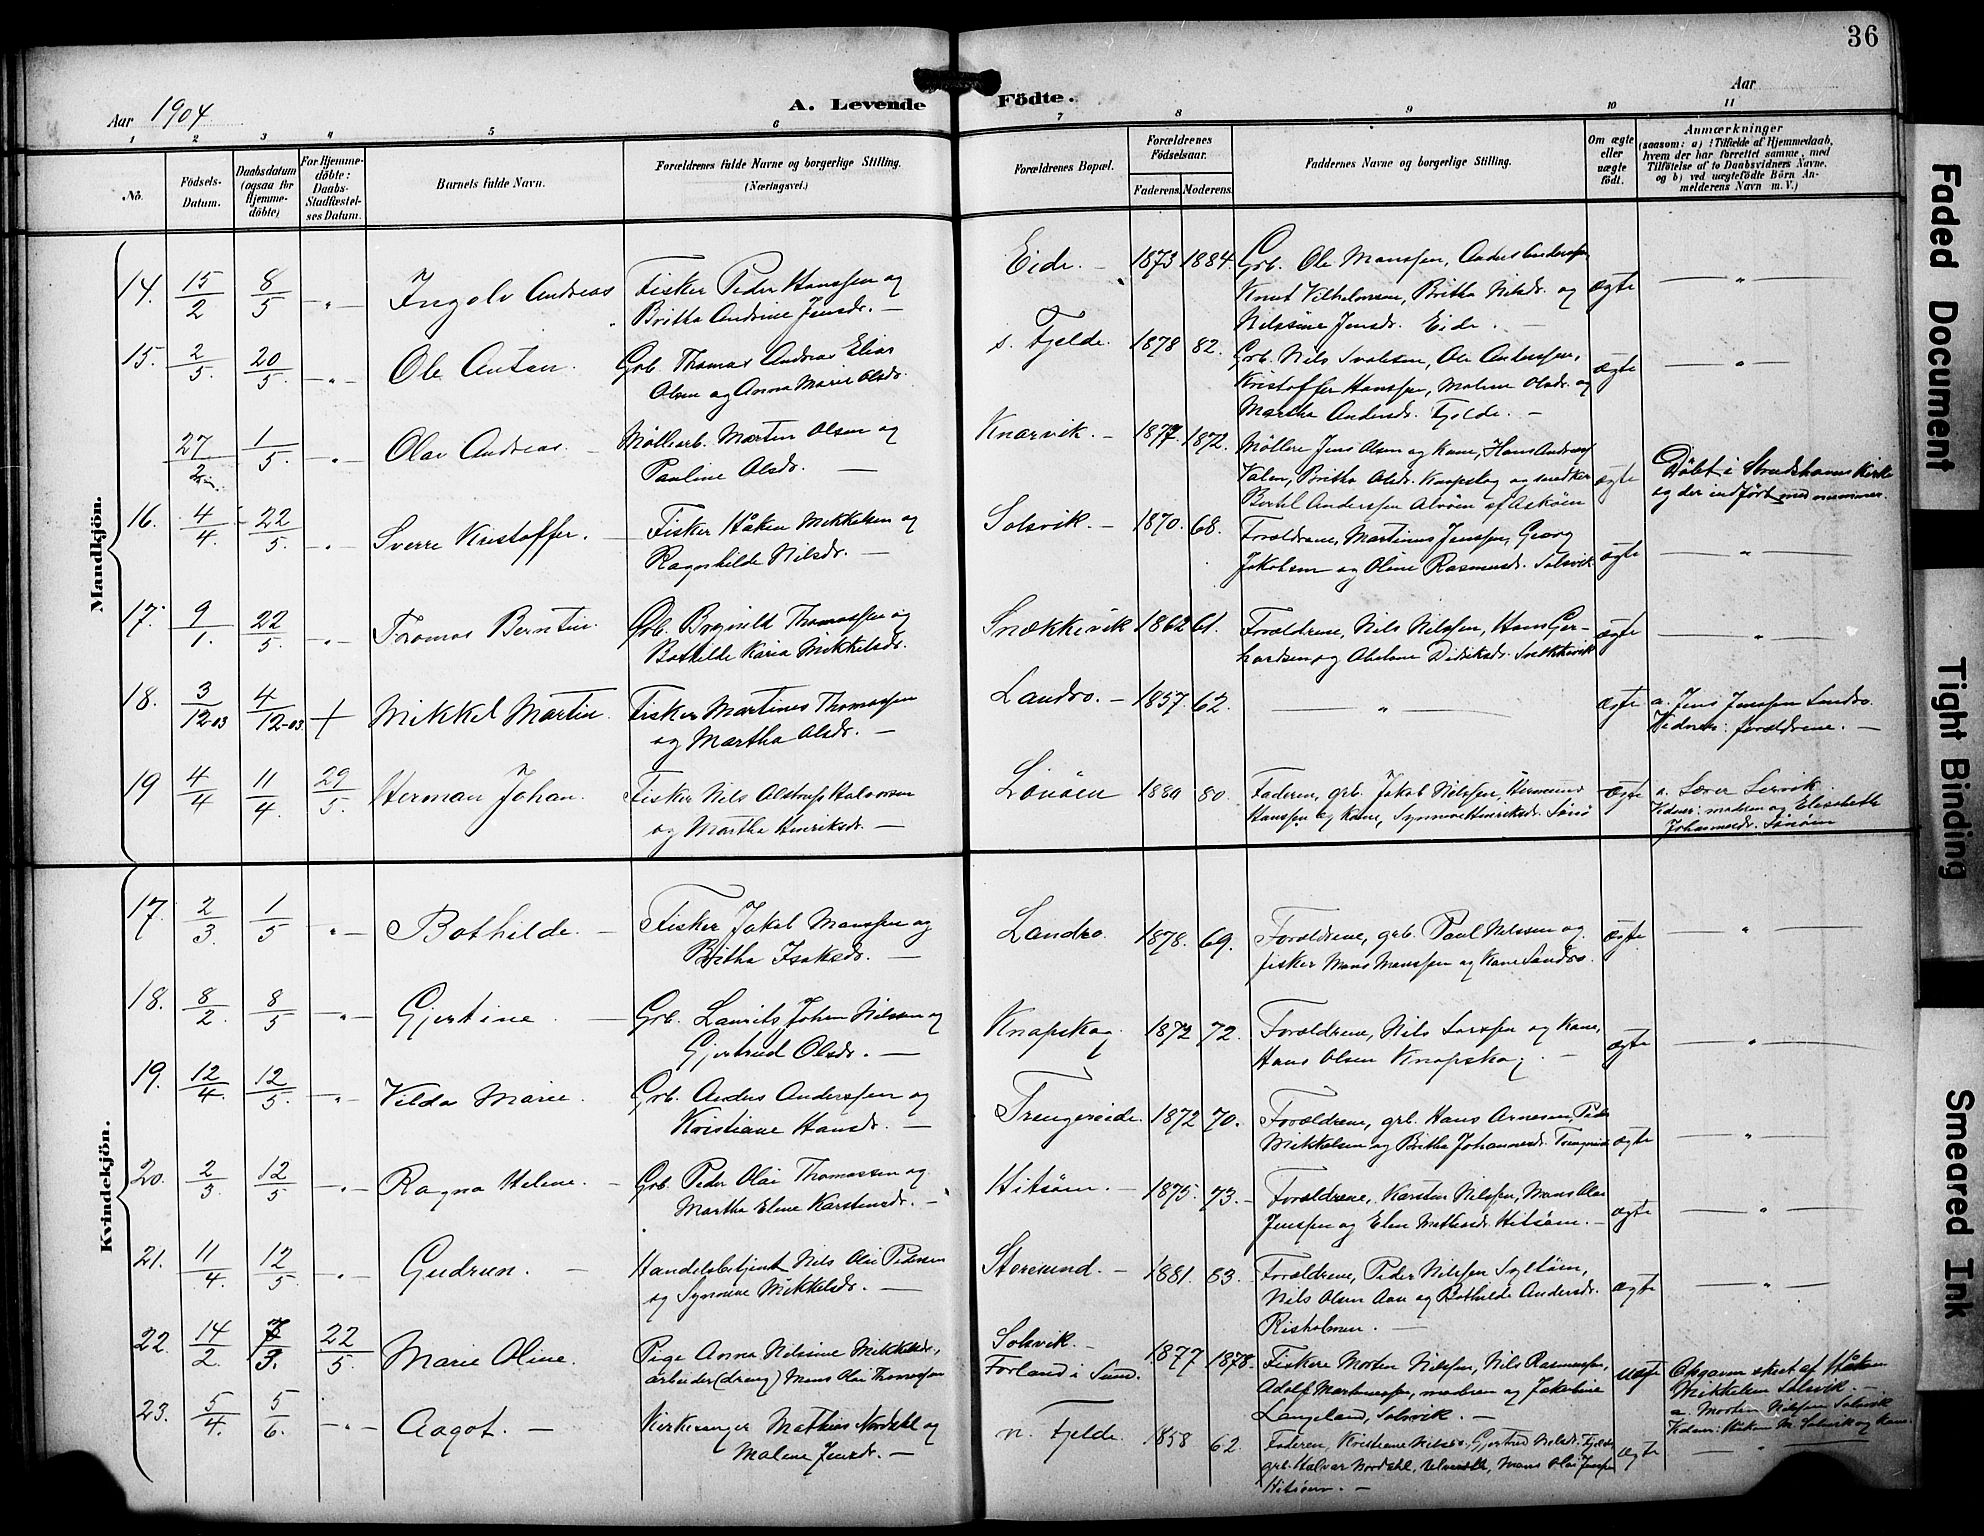 36
Aar 1904
A. Levende Födte.
Aar
1 2 3 4 5 6 7 8 9 10 11
No.
Födsels-Datum.
Daabsdatum (ogsaa for Hjemmedöbte)
For Hjemmedöbte: Daabs-Stadfæstelses Datum.
Barnets fulde Navn.
Forældrenes fulde Navne og borgerlige Stilling. (Næringsvei.)
Forældrenes Bopæl.
Forældrenes Födselsaar.
Faderens. Moderens.
Faddernes Navne og borgerlige Stilling.
Om ægte eller uægte födt.
Anmærkninger
(saasom: a) i Tilfælde af Hjemmedaab, hvem der har forrettet samme, med Tilföielse af to Daabsvidners Navne, og b) ved uægtefödte Börn Anmelderens Navn m. V.)
Mandkjön.
14. 15/2 8/5 - " - Ingolv Andreas
Fisker Peder Hanssen og
Britha Andrine Jensdr. -
Eide. - 1873 1884.
Grb. Ole Manssen, Anders Anderssen
Knut Vilhelmsen, Britha Nilsdr. og
Nilssine Jensdr. Eide. -
ægte - " -
15. 2/5. 20/5. - " - Ole Anton.
Grb. Thomas Andreas Elias
Olsen og Anna Marie Olsdr.
s. Fjelde. 1878 82.
Grb. Nils Olsen, Ole Anderssen,
Kristoffer Hanssen, Malene Olsdr. og
Martha Andersdr. Fjelde. -
ægte - " -
27/2 1/5. - " - Olai Andreas. -
Møllearb. Morten Olsen og
Pauline Olsdr. -
Knarvik. - 1877. 1872.
Möller Jens Olsen og Kone, Hans Andreas
Valen, Britha Olsdr. Knapskog og snedker
Bertil Anderssen Alvöen af Asköen
ægte
Döbt i Strudshavns Kirke
og der indfört med nummer.
16. 4/4. 22/5. - " - Sverre Kristoffer. -
Fisker Håkon Mikkelsen og
Ragnhilde Nilsdr. -
Solsvik. - 1870. 68.
Forældrene, Martinus Jenssen, Georg
Jakobsen og Oline Rasmusdr. Solsvik
ægte - " -
17. 9/1. 22/5. - " - Tromas Berntin.
Grb. Brynild Thomassen og
Bothilde Karia Mikkelsdr.
Snækkevik 1862 61.
Forældrene, Nils Nilssen, Hans Ger-
hardsen og Abelone Didriksdr. Snekkevik
ægte - " -
18. 3/12-03 4/12-03. + Mikkel Martin.
Fisker Martinus Thomassen
og Martha Olsdr. -
Landro. - 1857. 62.
- " -
ægte
a. Jens Jenssen Landro.
Vidner: forældrene. -
19 4/4 11/4. 29/5. Herman Johan.
Fisker Nils Alstrup Halvorsen
og Martha Henriksdr. -
Lönöen 1880 80.
Faderen, grb. Jakob Nilssen, Hermund
Hanssen og Kone, Synnøve Henriksdr. Lönö
ægte
a. Lærer Lervik.
Vidner: moderen og Elisabeth
Johannesdr. Lönöen
Kvindekjön.
17. 2/3. 1/5 - " - Bothilde. -
Fisker Jakob Manssen og
Britha Isaksdr. -
Landro. 1878. 69.
Forældrene, grb. Paul Nilssen og
fisker Mons Manssen og Kone Landro.
ægte - " -
18. 8/2. 8/5 - " - Gjertine. -
Grb. Laurits Johan Nilssen og
Gjertrud Olsdr. -
Knapskog. 1872 72.
Forældrene, Nils Larssen og Kone,
Hans Olsen Knapskog. -
ægte - " -
19. 12/4. 12/5. - " - Vilda Marie.
Grb. Anders Anderssen og
Kristiane Hansdr. -
Trengereide. 1872 70.
Forældrene, grb. Hans Arnesen, Peder
Mikkelsen og Britha Johannesdr. Trengereide
ægte - " -
20. 2/3. 12/5 - " - Ragna Helene. -
Grb. Peder Olai Thomassen og
Martha Elene Karstensdr. -
Hitsöen. - 1875. 73. -
Forældrene, Karsten Nilssen, Mons Olai
Jenssen og Elen Mathisdr. Hitsöen. -
ægte - " -
21. 11/4. 12/5. - " - Gudrun. -
Handelsbetjent Nils Olai Pedersen
og Synnøve Mikkelsdr. -
Storesund. - 1881. 83.
Forældrene, Peder Nilssen Syltöen,
Nils Olsen Aae og Bothilde Andersdr.
Risholmen. -
ægte - " -
22. 14/2. 7/3. 22/5. Marie Oline.
Pige Anna Nilssine Mikkelsdr.,
arbeider (dreng) Mons Olai Thomassen
Solsvik. -
Forland i Sund. 1877 1878.
Fiskere Morten Nilssen, Nils Rasmussen,
Adolf Martinussen, moderen og Jakobine
Langeland, Solsvik. -
uægte
Opgaven skeet af Håkon
Mikkelsen Solsvik. -
a. Morten Nilssen Solsvik
Vidner: Håkon M. Solsvik og Kone.
23. 5/4. 5/6. - " - Aagot. -
Kirkesanger Mathias Nordahl og
Malene Jensdr. -
n. Fjelde. 1858 62.
Faderen, Kristiane Nilsdr., Gjertrud Nilsdr. Fjelde,
grb. Halvar Nordahl, Ulvesæth, Mons Olai Jenssen
Hitsöen. -
ægte - " -
Faded Document
Tight Binding
Smeared Ink